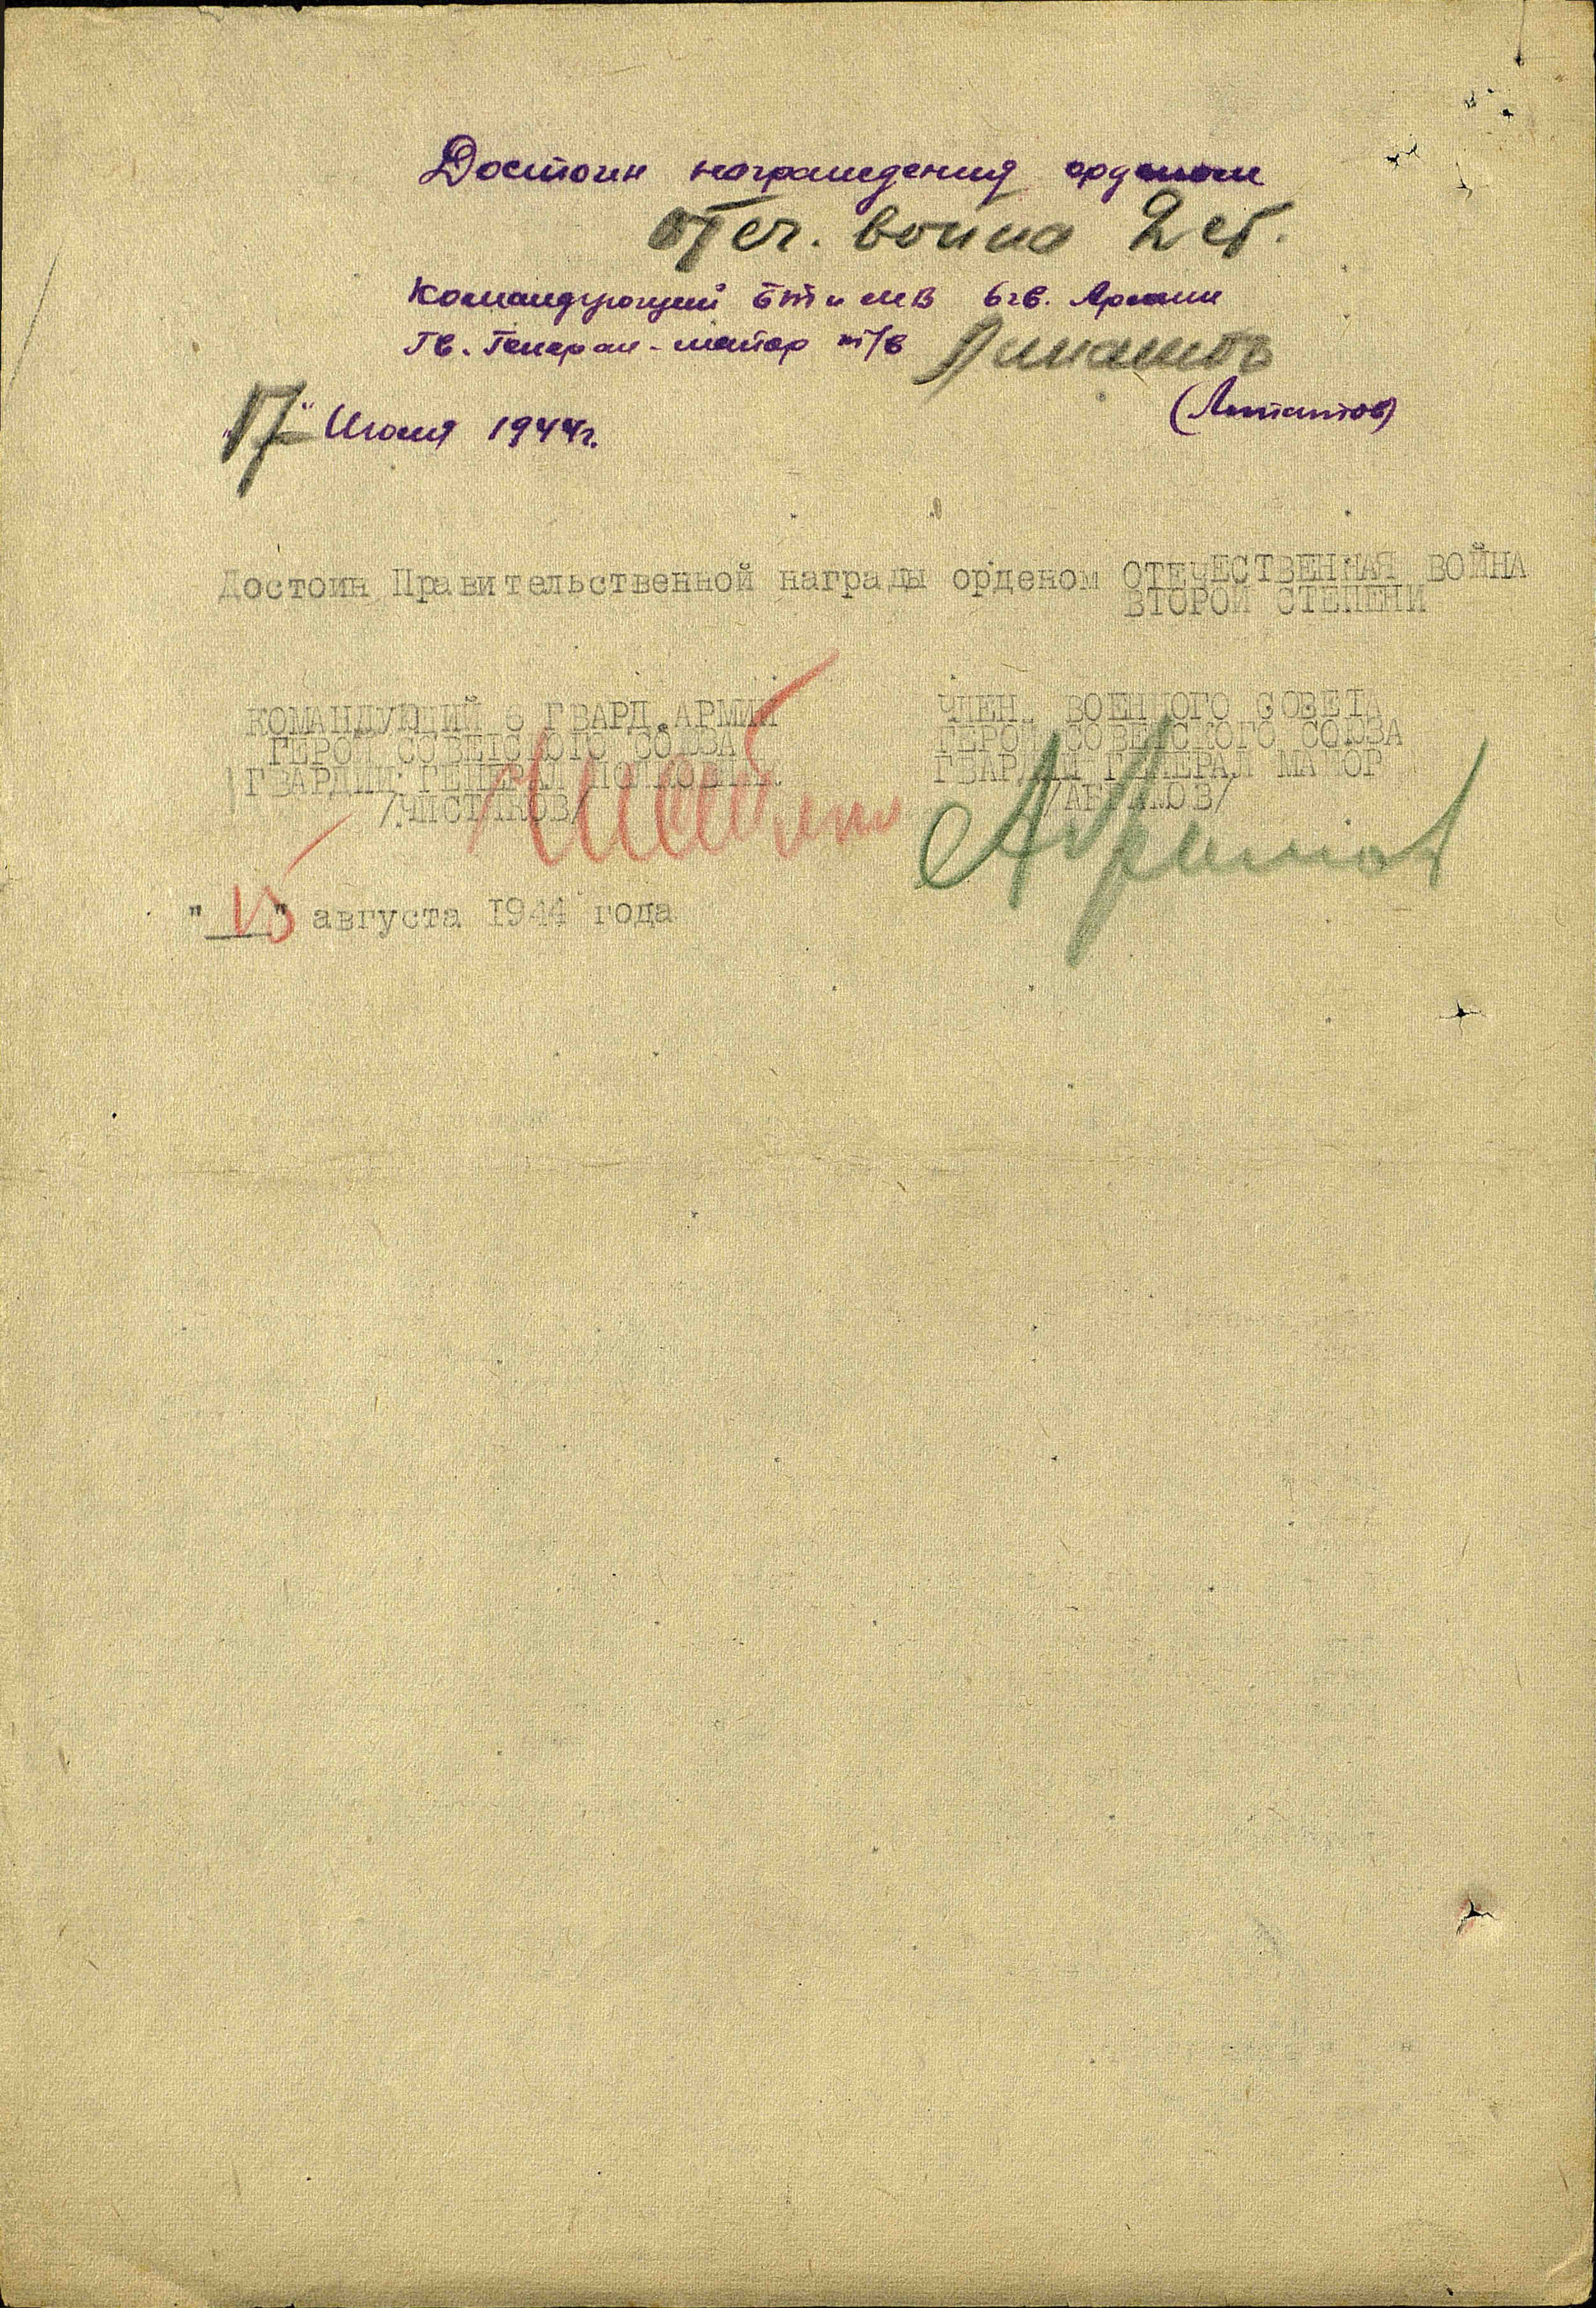 Достоин награждения орденом
Отеч. война 2 ст.
Командующий БТ и МВ 6 гв. Армии
Гв. Генерал-майор т/в Липатов
(Липатов)
"17" Июля 1944г.
Достоин Правительственной награды орденом ОТЕЧЕСТВЕННАЯ ВОЙНА
ВТОРОЙ СТЕПЕНИ
КОМАНДУЮЩИЙ 6 ГВАРД.АРМИИ
ГЕРОЙ СОВЕТСКОГО СОЮЗА
ГВАРДИИ ГЕНЕРАЛ ПОЛКОВНИК
/ЧИСТЯКОВ/
ЧЛЕН ВОЕННОГО СОВЕТА
ГЕРОЙ СОВЕТСКОГО СОЮЗА
ГВАРДИИ ГЕНЕРАЛ МАЙОР
/АБРАМОВ/
Абрамов
"15" августа 1944 года